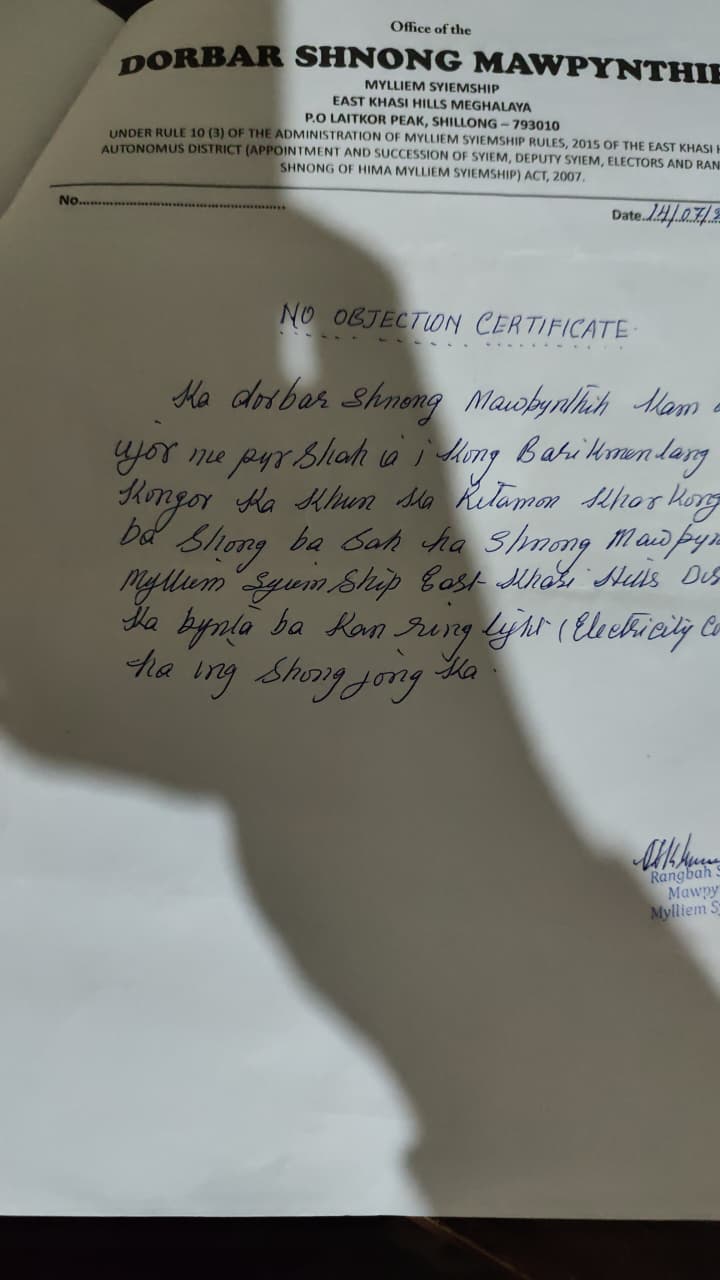 Office of the
DORBAR SHNONG MAWPYNTHIH
MYLLIEM SYIEMSHIP
EAST KHASI HILLS MEGHALAYA
P.O LAITKOR PEAK, SHILLONG – 793010
UNDER RULE 10 (3) OF THE ADMINISTRATION OF MYLLIEM SYIEMSHIP RULES, 2015 OF THE EAST KHASI
AUTONOMUS DISTRICT (APPOINTMENT AND SUCCESSION OF SYIEM, DEPUTY SYIEM, ELECTORS AND RAN
SHNONG OF HIMA MYLLIEM SYIEMSHIP) ACT, 2007.
No.
Date. 14/07/
NO OBJECTION CERTIFICATE
Ka dorbar Shnong Mawpynthih kam
ujor ne pyrshah ia i Kong
Kongor ka khun ka Ritamon Kharkong
ba shong ba sah ha Shnong Mawpyn
Mylliem Syiemship East Khasi Hills Dis
Ka bynta ba kan ring light (Electricity Co
ha ing shong jong ka.
Rangbah S
Mawpy
Mylliem Sy